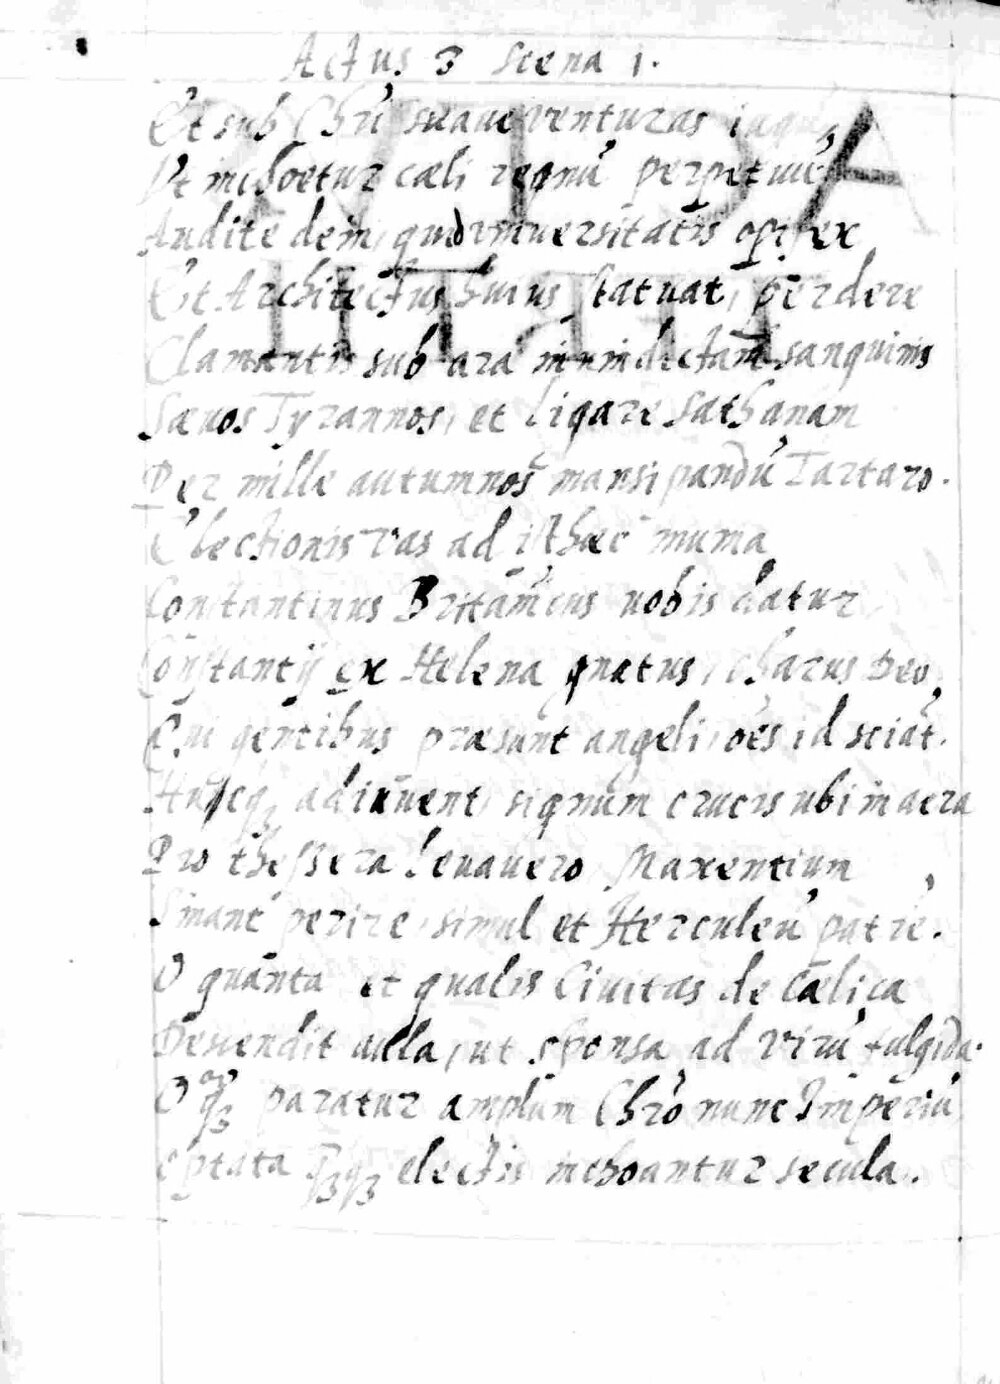 Actus 3 Scena 1.
Et sub Chrī suave venturas iugū,
Ut inchoetur cæli regnū perpetuū
Audite dein, quid universitatis opifex
Et Architectus huius statuat, perdere
Clamantis sub ara in vindictam sanguinis
Sævos Tyrannos, et ligare Sathanam
Per mille autumnos mansipandū Tartaro.
Electionis vas ad isthæc munia
Constantinus Britanicus nobis datur
Constantij ex Helena gnatus, charus Deo,
Qui gentibus præsunt angeli, oēs id sciāt.
Huncq3 adiuvent, signum crucis ubi in aera
Pro thessera levavero, Maxentium
Sinant perire, simul et Herculeū patrē.
O quanta et qualis Civitas de cælica
Descendit aula, ut sponsa ad virū fulgida.
O paratur amplum Chrō nunc Imperiū
electis inchoantur secula.